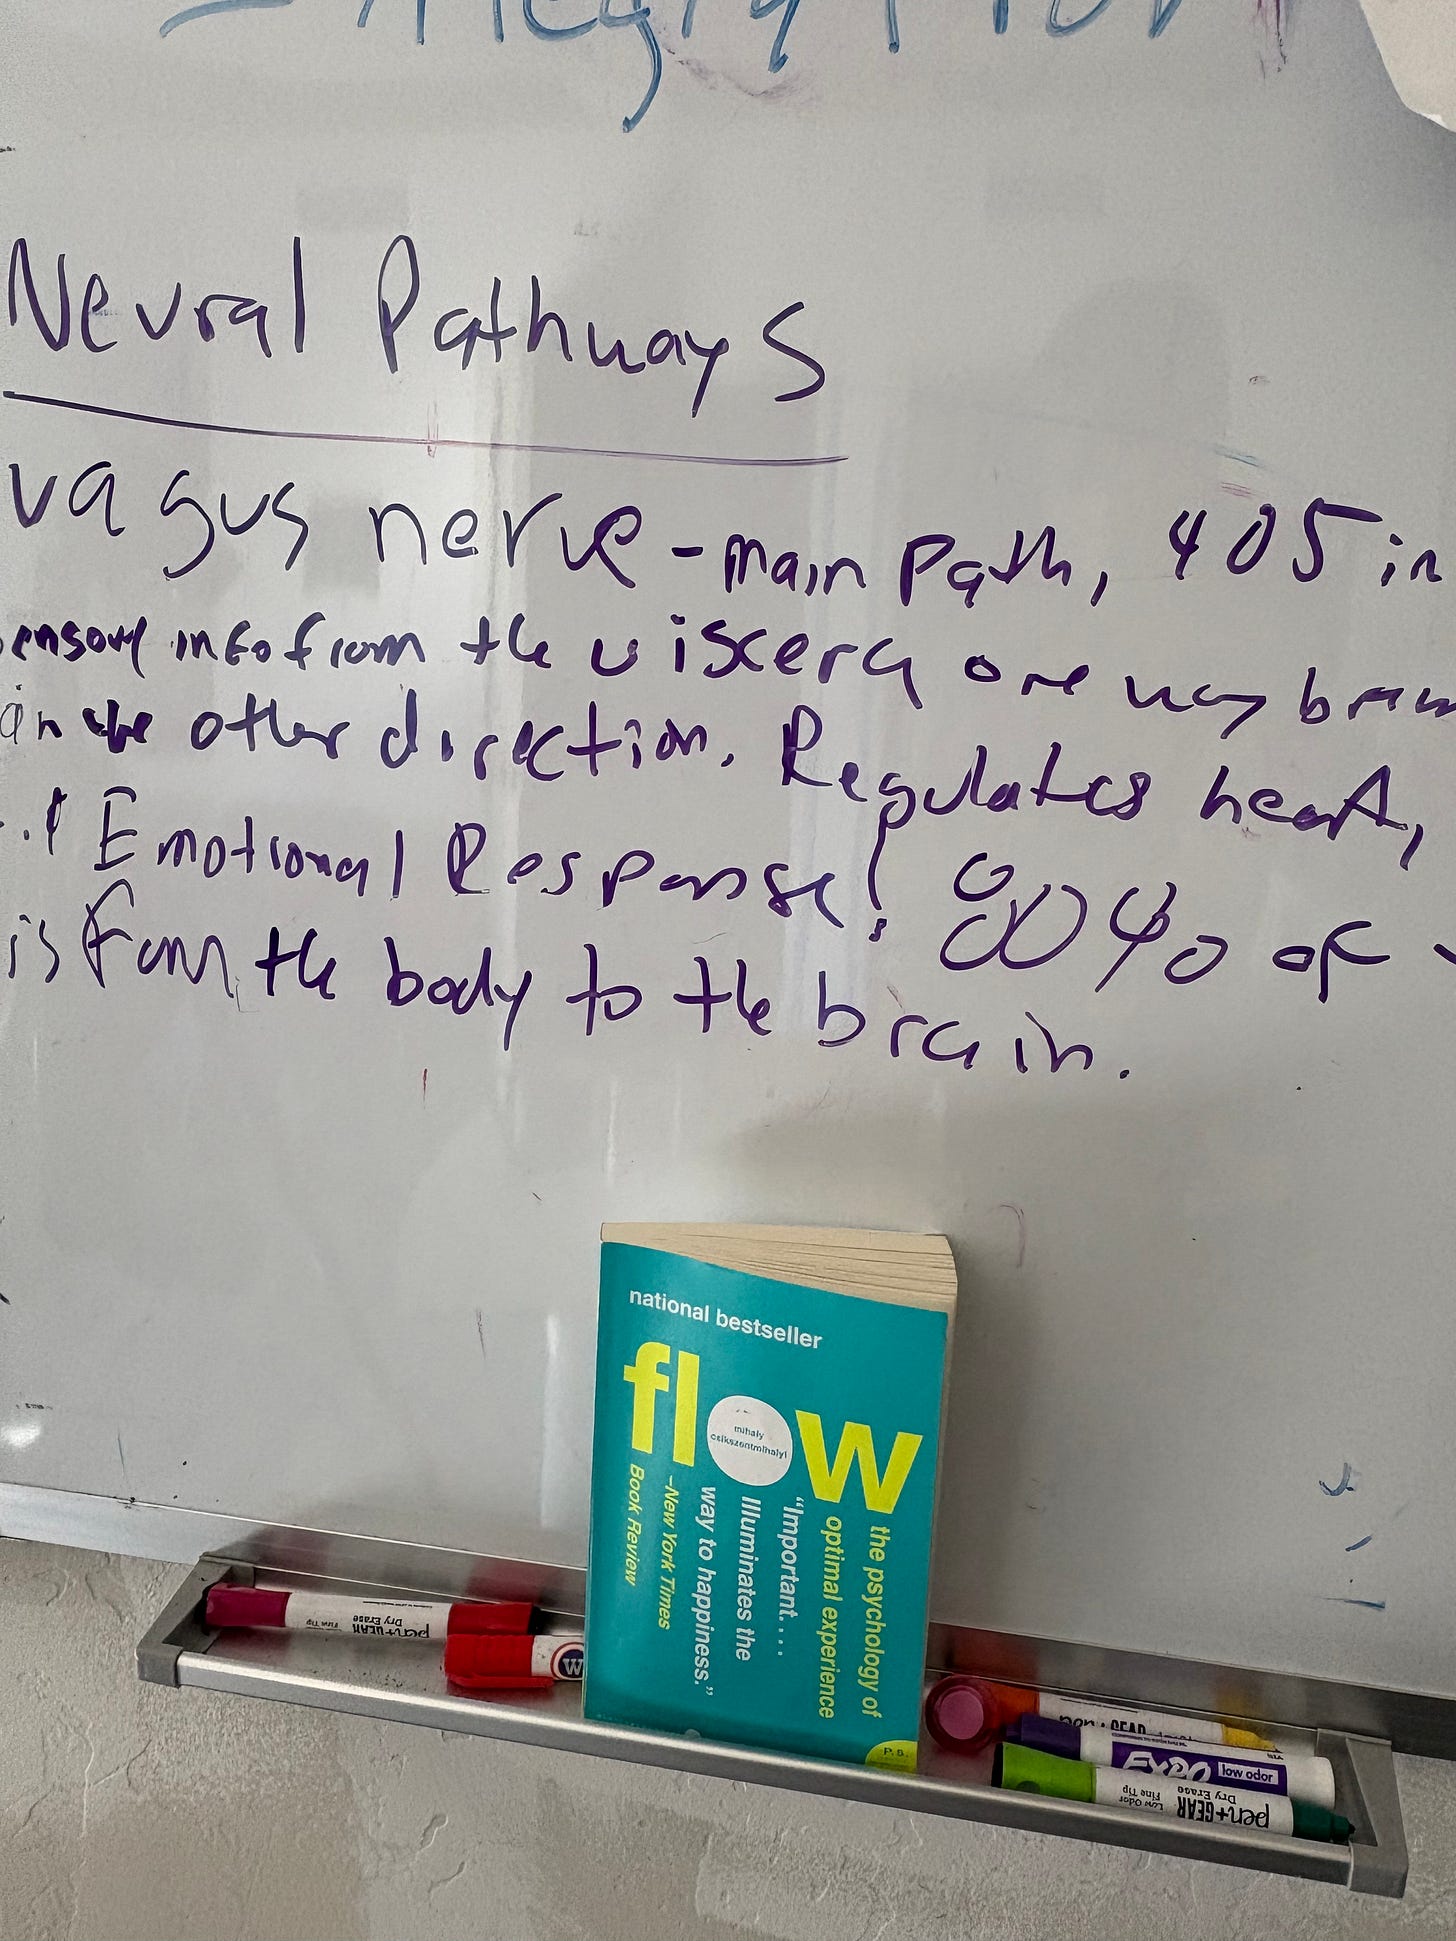 Integration
Neural Pathways
vagus nerve - main path, 405 in
ensory info from the viscera one way brain
in the other direction. Regulates heart,
Emotional Response! 80% of
is from the body to the brain.
national bestseller
flow
mihaly
csikszentmihalyi
the psychology of
optimal experience
"Important. . . .
Illuminates the
way to happiness."
—New York Times
Book Review
P.S.
pen+GEAR
Dry Erase
Fine Tip
W
EXPO
low odor
pen+GEAR
Dry Erase
Low Odor
Fine Tip